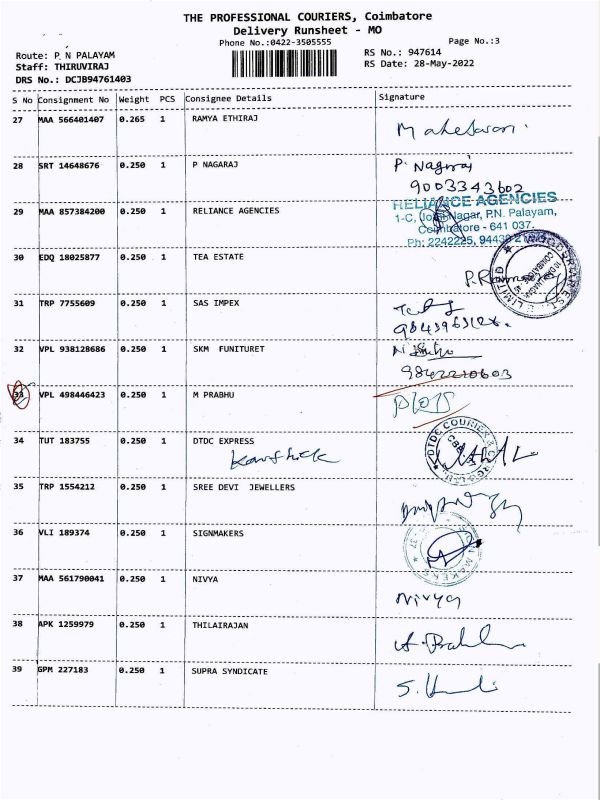 THE PROFESSIONAL COURIERS, Coimbatore
Delivery Runsheet - MO
Phone No.:0422-3505555
Page No.:3
Route: P N PALAYAM
RS No.: 947614
Staff: THIRUVIRAJ
RS Date: 28-May-2022
DRS No.: DCJB94761403
S No Consignment No Weight PCS Consignee Details Signature
27 MAA 566401407 0.265 1 RAMYA ETHIRAJ
28 SRT 14648676 0.250 1 P NAGARAJ P. Nagaraj
9003343602
29 MAA 857384200 0.250 1 RELIANCE AGENCIES RELIANCE AGENCIES
Nagar, P.N. Palayam,
Coimbatore - 641 037.
Ph: 2242225,
30 EDQ 18025877 0.250 1 TEA ESTATE
31 TRP 7755609 0.250 1 SAS IMPEX
32 VPL 938128686 0.250 1 SKM FUNITURET
9842210603
33 VPL 498446423 0.250 1 M PRABHU
34 TUT 183755 0.250 1 DTDC EXPRESS DTDC COURIER &
Karthick
35 TRP 1554212 0.250 1 SREE DEVI JEWELLERS
36 VLI 189374 0.250 1 SIGNMAKERS
37 MAA 561790041 0.250 1 NIVYA Nivya
38 APK 1259979 0.250 1 THILAIRAJAN
39 GPM 227183 0.250 1 SUPRA SYNDICATE